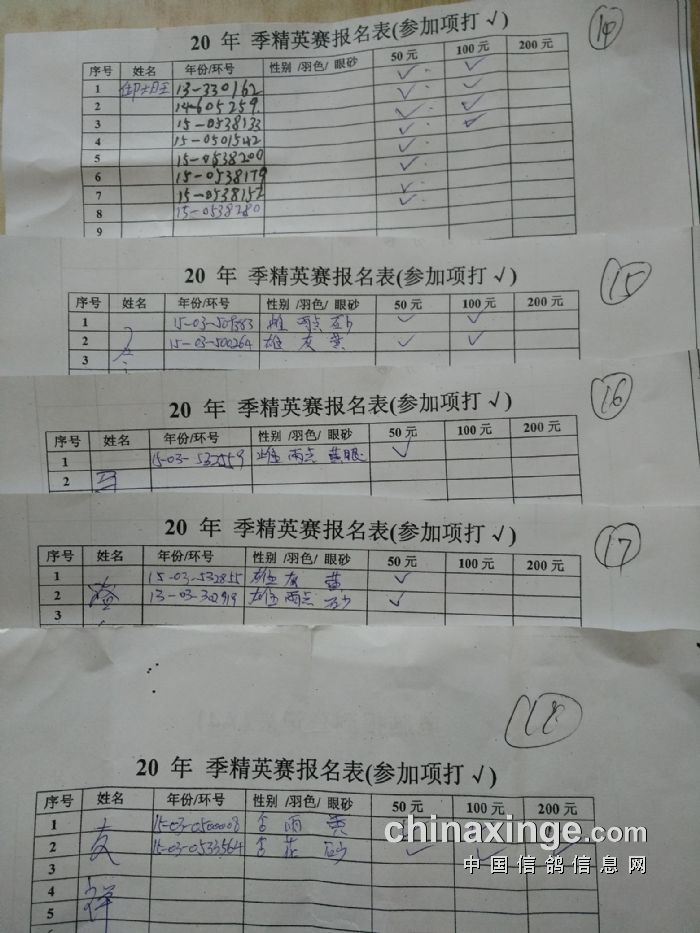 20 年 季精英赛报名表(参加项打 √) 14
序号 姓名 年份/环号 性别 /羽色/ 眼砂 50 元 100 元 200 元
1 13-330162 √ √
2 14-605259 √ √
3 15-0538133 √ √
4 15-0501542 √ √
5 15-0538200 √
6 15-0538179 √
7 15-0538152 √
8 15-0538280 √
9
20 年 季精英赛报名表(参加项打 √) 15
序号 姓名 年份/环号 性别 /羽色/ 眼砂 50 元 100 元 200 元
1 15-03-509383 雌 雨点 砂 √ √
2 15-03-500264 雄 灰 黄 √ √
3
20 年 季精英赛报名表(参加项打 √) 16
序号 姓名 年份/环号 性别 /羽色/ 眼砂 50 元 100 元 200 元
1 15-03-532559 雌 雨点 黄眼 √
2
20 年 季精英赛报名表(参加项打 √) 17
序号 姓名 年份/环号 性别 /羽色/ 眼砂 50 元 100 元 200 元
1 15-03-532855 雄 灰 黄 √
2 13-03-302919 雄 雨点 砂 √
3
18
20 年 季精英赛报名表(参加项打 √)
序号 姓名 年份/环号 性别 /羽色/ 眼砂 50 元 100 元 200 元
1 15-03-0500008 雨 黄
2 友 15-03-0533564 花 砂 √ √ √
3
4 祥
5
chinaxinge.com
中国信鸽信息网